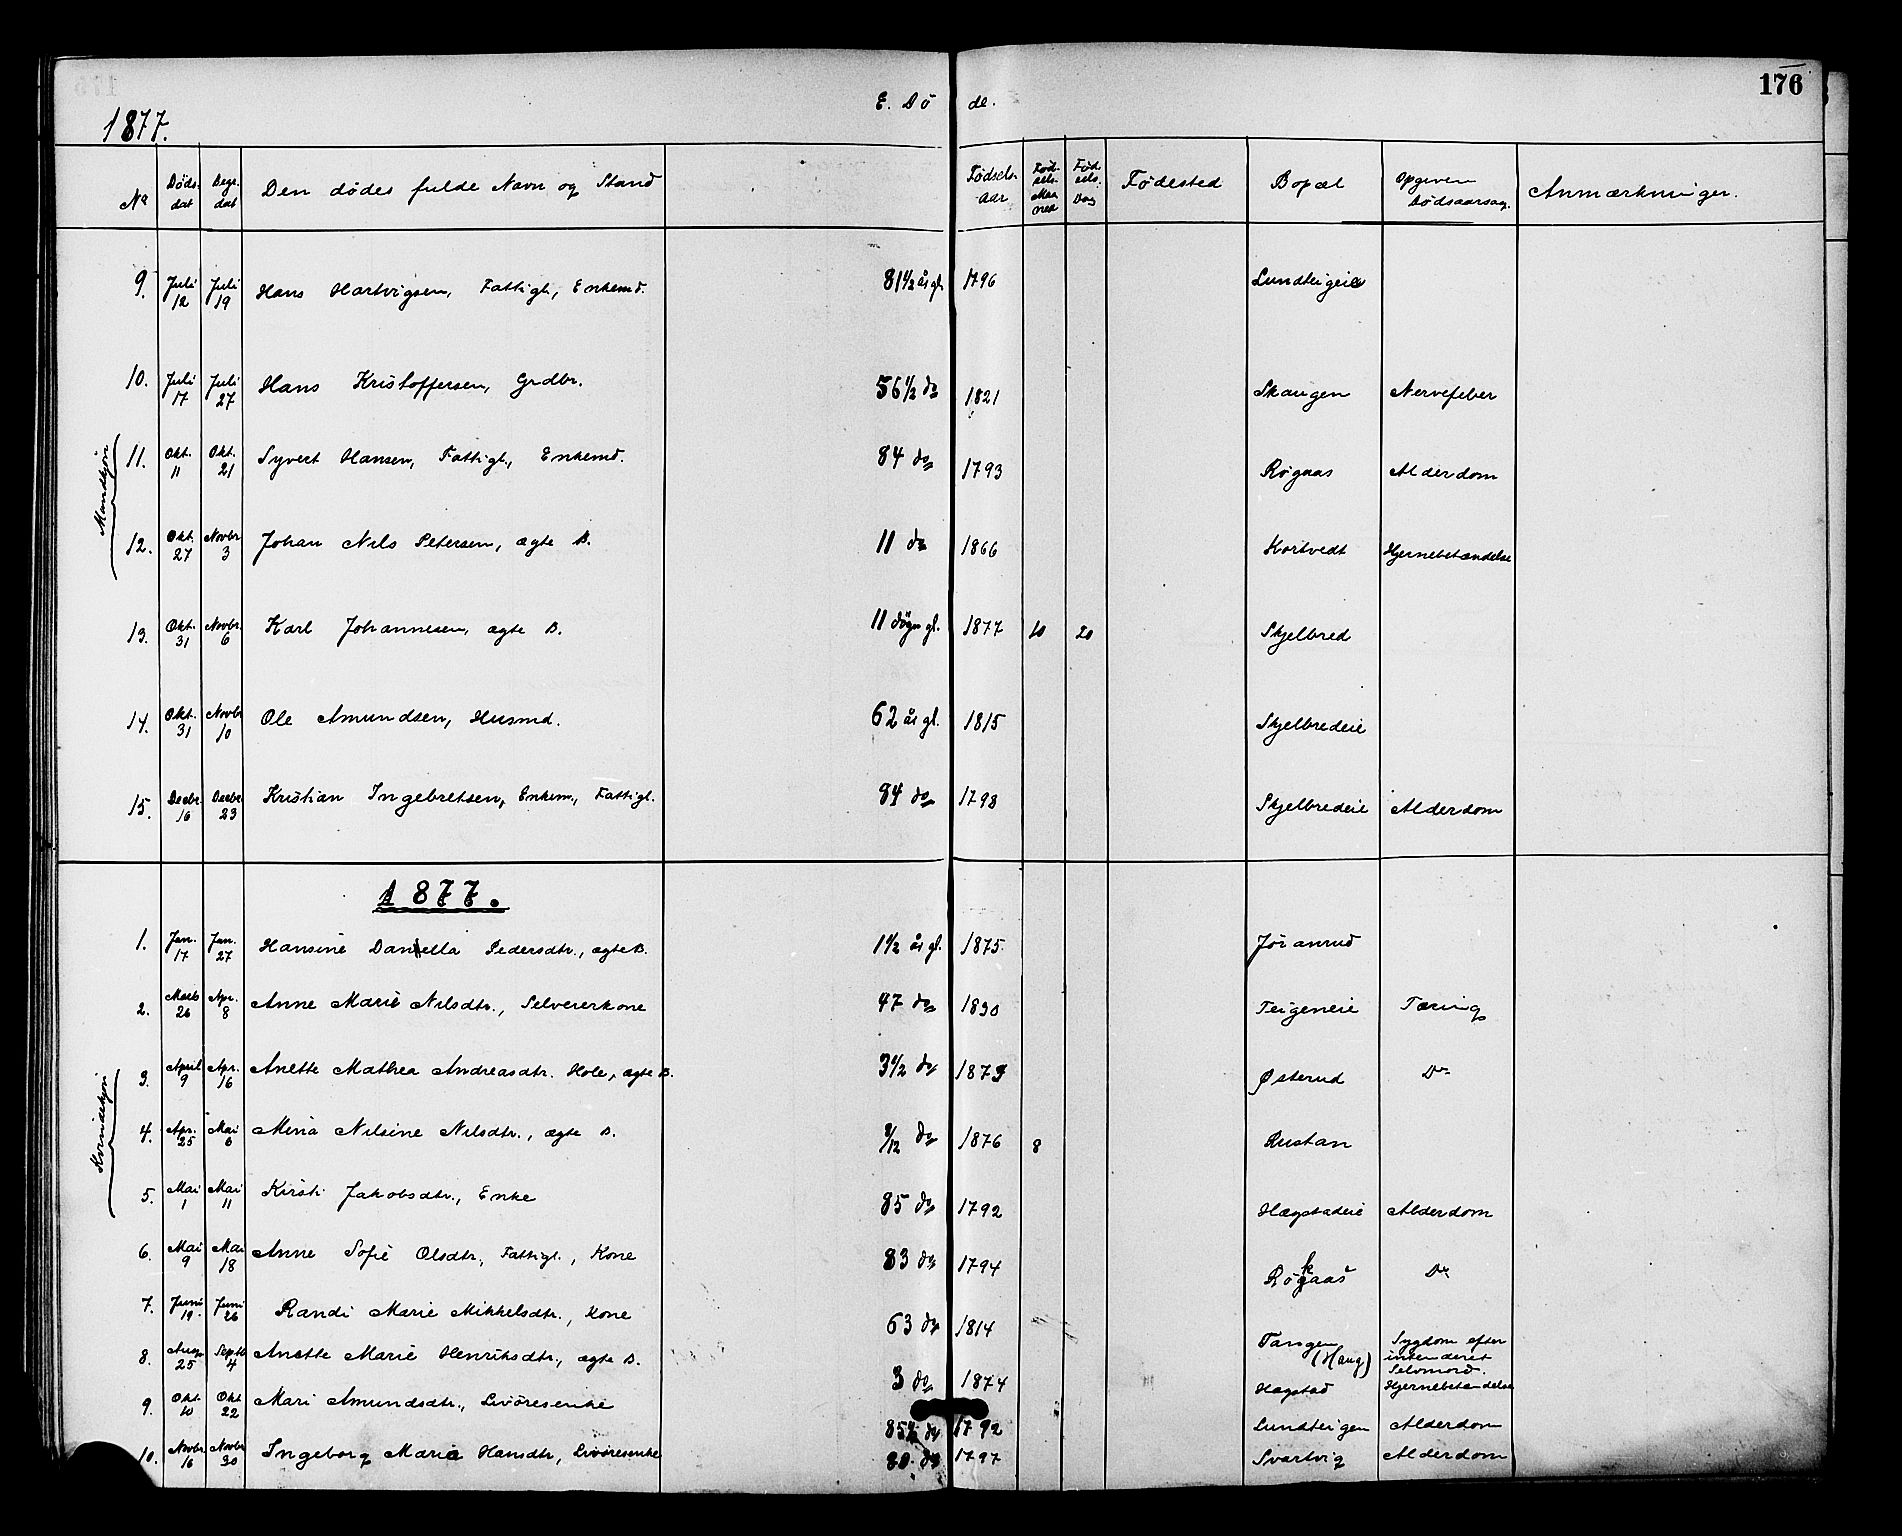 176
1877. E. Døde.
No Døds-dat Begr.dat Den dødes fulde Navn og Stand Fødsels-aar Fød-sels-Maa-ned Fød-sels-Dag Fødested Bopæl Opgiven Dødsaarsag. Anmærkninger.
Mandkjøn
9. Juli 12 Juli 19 Hans Hartvigsen, Fattigl., Enkemd. 81 1/2 år gl. 1796 Lundteigeie
10. Juli 17 Juli 27 Hans Kristoffersen, Grdbr. 56 1/2 do 1821 Skaugen Nervefeber
11. Okt. 11 Okt. 21 Syvert Hansen, Fattigl., Enkemd. 84 do 1793 Røgaas Alderdom
12. Okt. 27 Novbr 3 Johan Nils Petersen, ægte B. 11 do 1866 Kortvedt Hjernebetændelse
13. Okt. 31 Novbr. 6 Karl Johannesen, ægte B. 11 døgn gl. 1877 10 20 Skjelbred
14. Okt. 31 Novbr 10 Ole Amundsen, Husmd. 62 år gl. 1815 Skjelbredeie
15. Decbr. 16 Decbr 23 Kristian Ingebretsen, Enkem., Fattigl. 84 do 1798 Skjelbredeie Alderdom
1877.
Kvindekjøn
1. Jan. 17 Jan. 27 Hansine Daniella Pedersdtr., ægte B. 1 1/2 år gl. 1875. Jøranrud
2. Marts 26 Apr. 8 Anne Marie Nilsdtr., Selveierkone 47 do 1830 Teigeneie Tæring
3. April 9 Apr. 16 Anette Mathea Andreasdtr. Hole, ægte B. 3 1/2 do 1873 Østerud Do
4. Apr. 25 Mai 6 Mina Nilsine Nilsdtr., ægte B. 8/12 do 1876 8 Rustan
5. Mai 1 Mai 11 Kirsti Jakobsdtr., Enke 85 do 1792 Hægstadeie Alderdom
6. Mai 9 Mai 18 Anne Sofie Olsdtr., Fattigl., Kone 83 do 1794 Røkaas Do
7. Juni 19. Juni 26 Randi Marie Mikkelsdtr., Kone 63 do 1814 Tangen (Haug) Sygdom efter intenderet Selvmord.
8. Aug. 25 Septb 4 Anette Marie Henriksdtr., ægte B. 3 do 1874 Hægstad Hjernebetændelse
9. Okt. 10 Okt 22 Mari Amundsdtr., Livøresenke 85 1/2 do 1792 Lundteigen Alderdom
10. Novbr 16 Novbr 30 Ingeborg Marie Hansdtr, Livøresenke 80 do 1797 Svartvig Alderdom